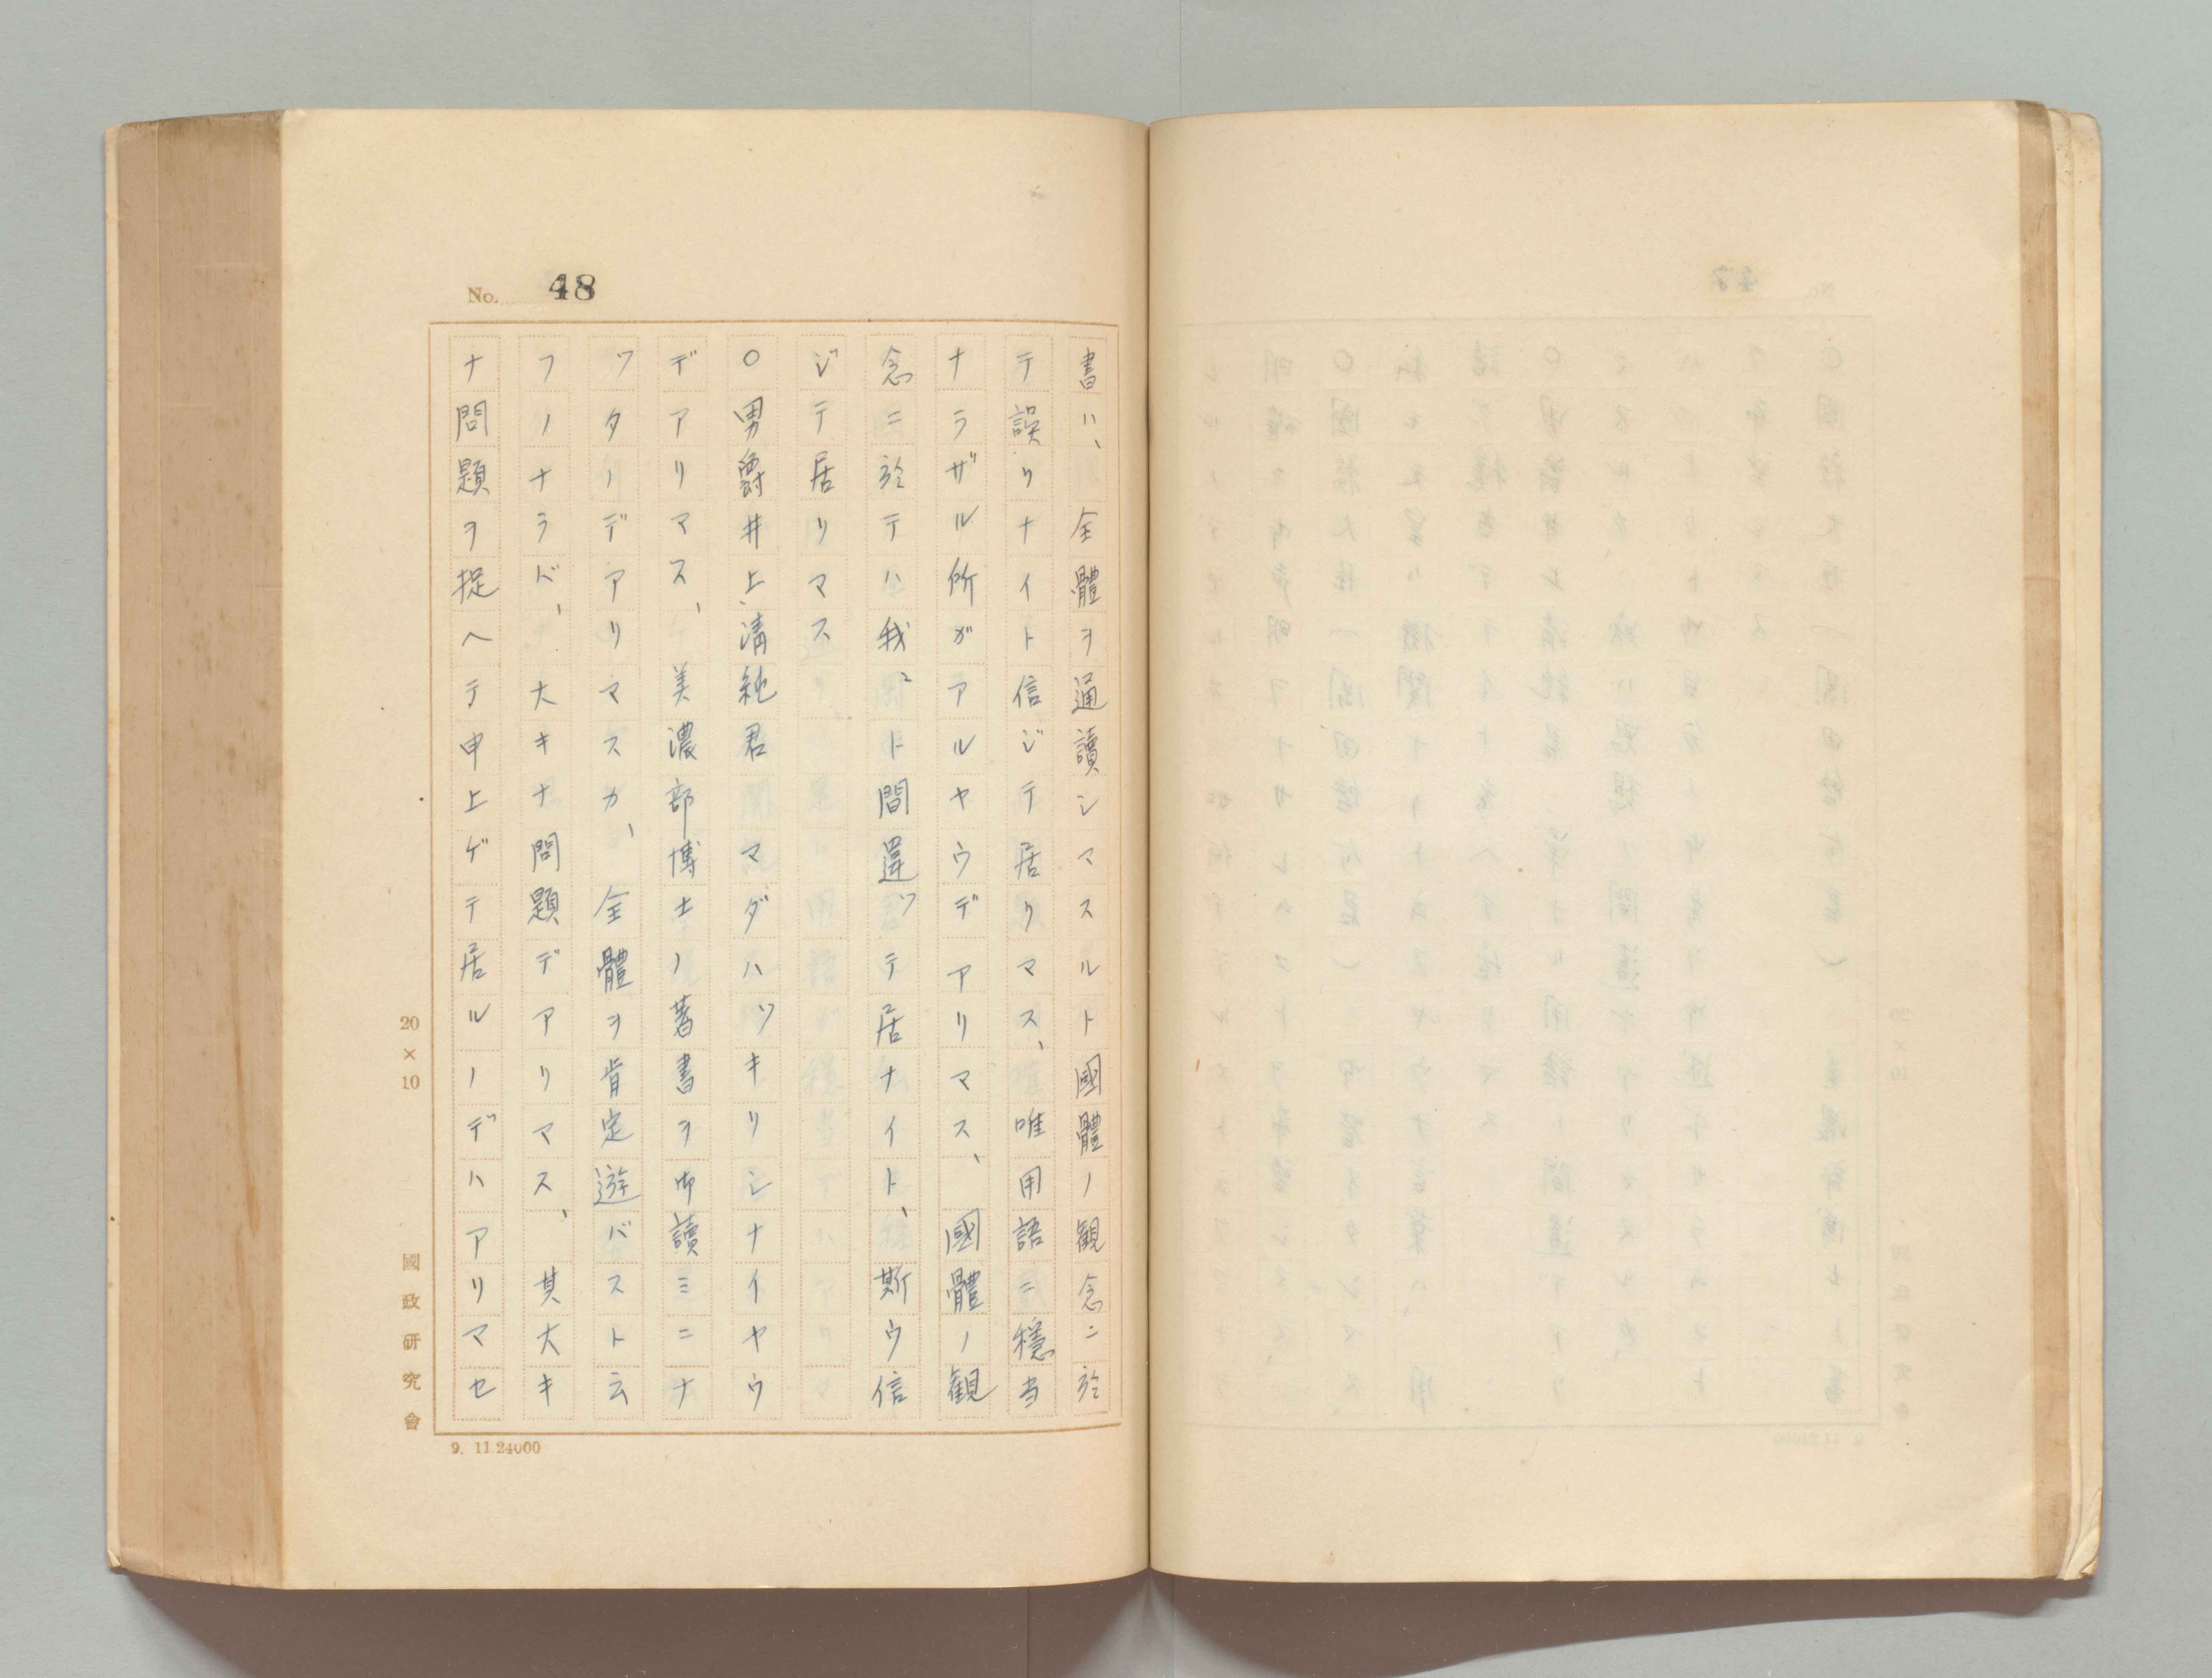 No. 48
書ハ、全體ヲ通讀シマスルト國體ノ観念ニ於
テ誤リナイト信ジテ居リマス、唯用語ニ穏当
ナラザル所ガアルヤウデアリマス、國體ノ観
念ニ於テハ我々ト間違ッテ居ナイト、斯ウ信
ジテ居リマス
〇男爵井上清純君 マダハッキリシナイヤウ
デアリマス、美濃部博士ノ著書ヲ御讀ミニナ
ッタノデアリマスカ、全體ヲ肯定遊バスト云
フノナラバ、大キナ問題デアリマス、其大キ
ナ問題ヲ捉ヘテ申上ゲテ居ルノデハアリマセ
20×10
國政研究會
9. 11 24000